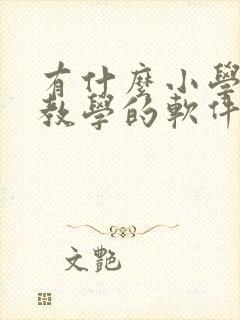 有什麼小學
教學的軟件
文艷